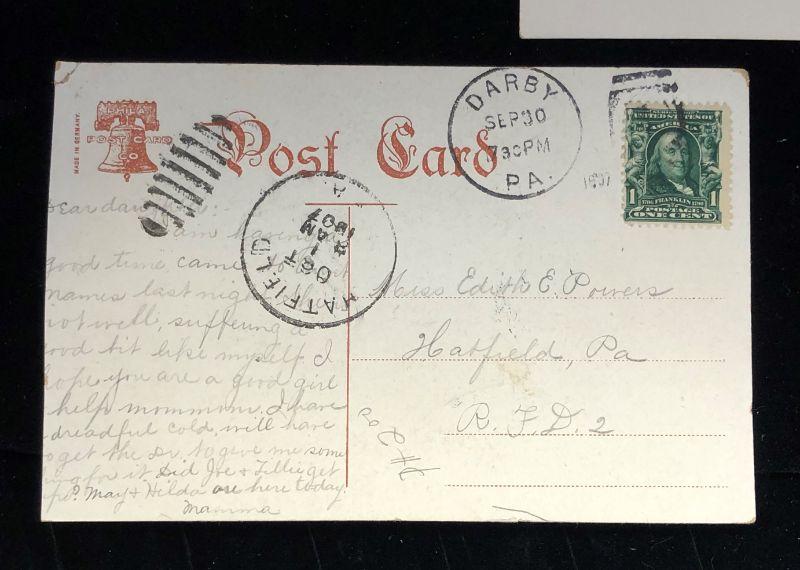 POST CARD
CO
MADE IN GERMANY.
Post Card
DARBY
SEP 30
730 PM
PA.
1907
SERIES 1902
UNITED STATES OF
AMERICA
1706 FRANKLIN 1790
POSTAGE
1 ONE CENT 1
HATFIELD
OCT
1
AM
1907
PA
Dear daughter:
am having
good time, came
names last night
not well, suffering a
good bit like myself. I
hope you are a good girl
help mommom. I have
dreadful cold, will have
to get the Dr. to give me some
thing for it. Did Joe & Lillie get
up? May & Hilda are here today.
Mamma
Miss Edith E. Powers
Hatfield, Pa
R. F. D. 2